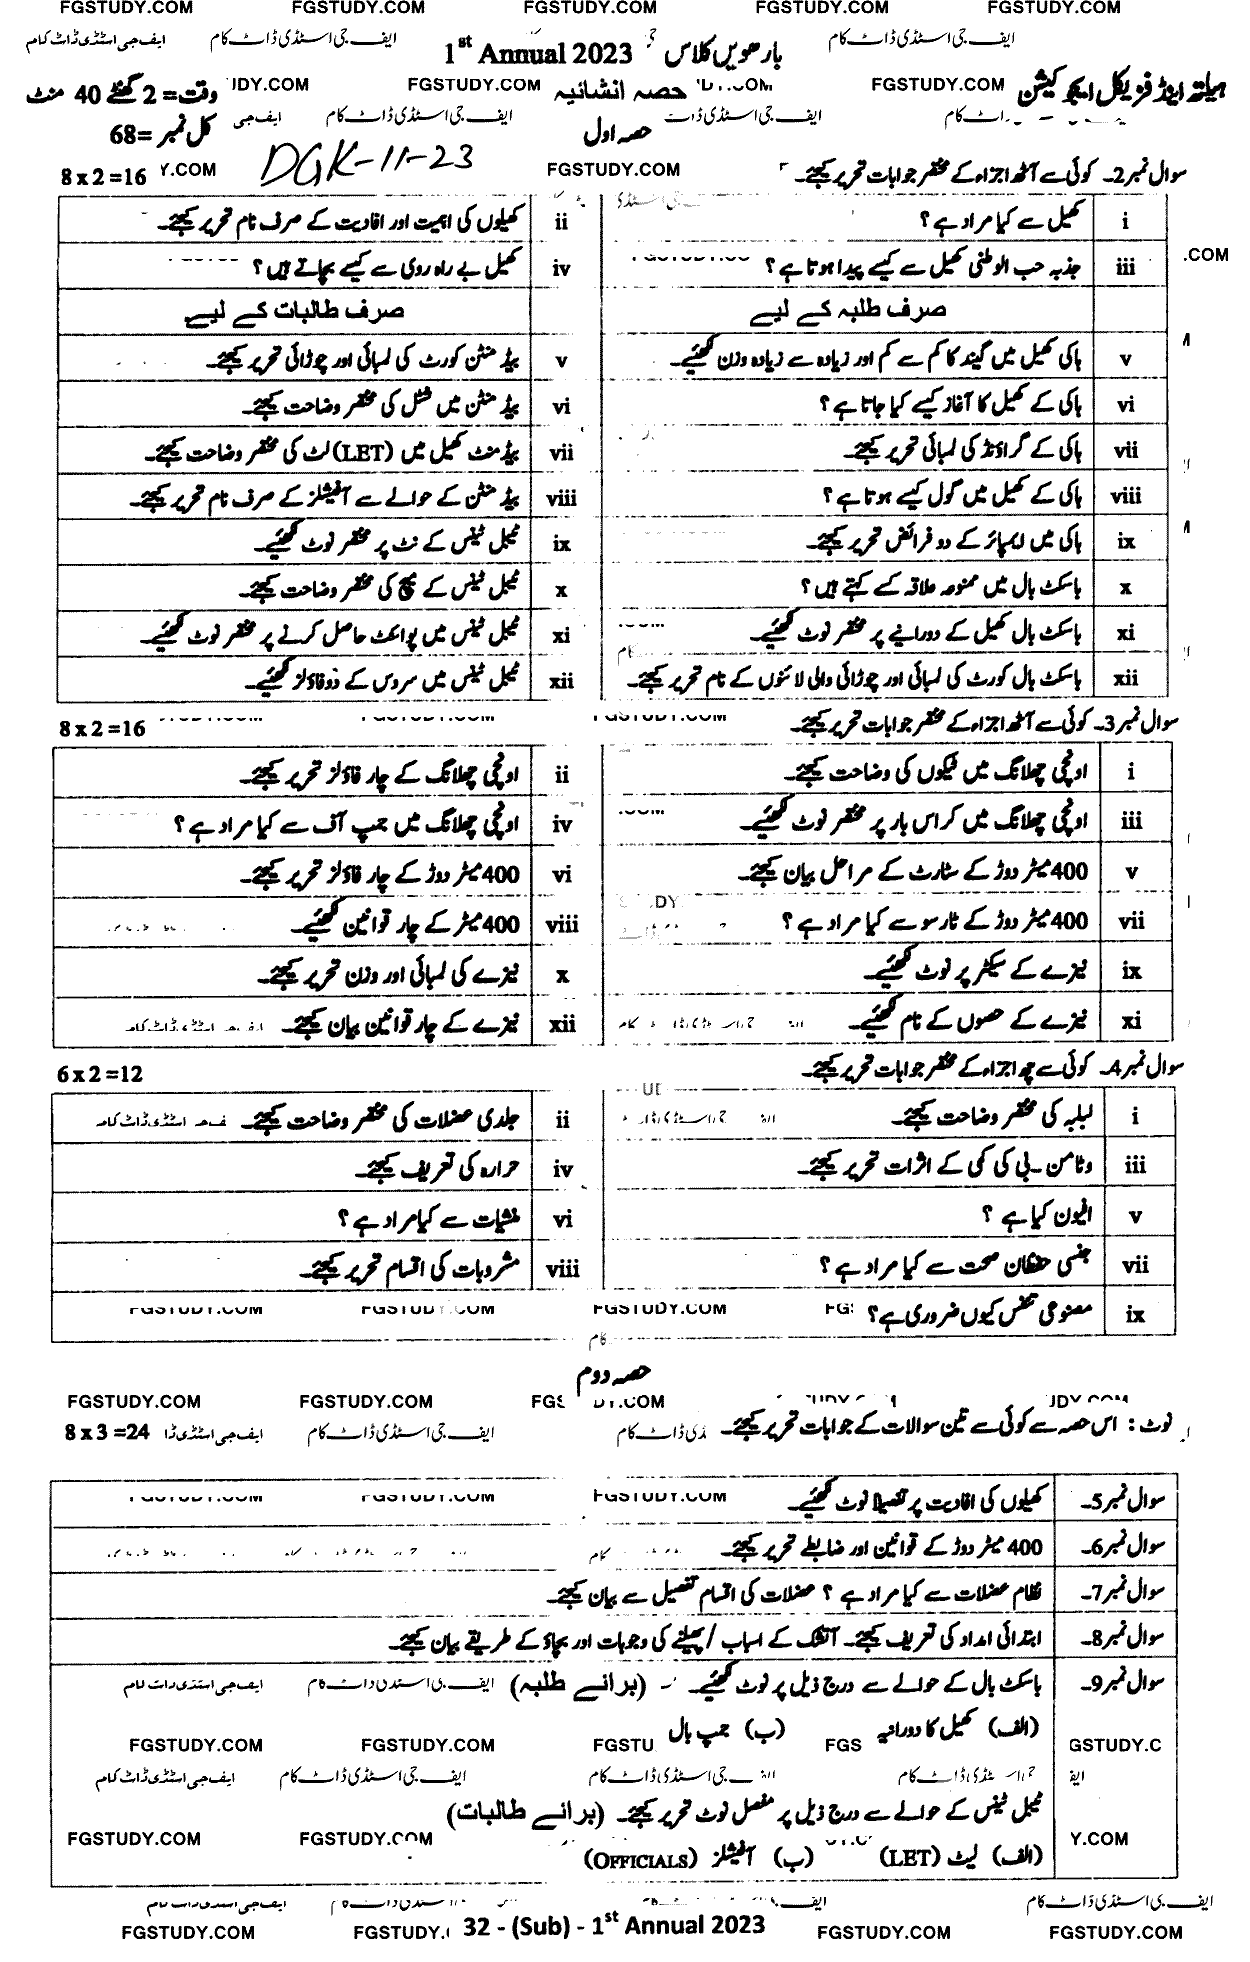 FGSTUDY.COM FGSTUDY.COM FGSTUDY.COM FGSTUDY.COM FGSTUDY.COM
ایف جی اسٹڈی ڈاٹ کام ایف جی اسٹڈی ڈاٹ کام ایف جی اسٹڈی ڈاٹ کام
بارھویں کلاس 1st Annual 2023
ہیلتھ اینڈ فزیکل ایجوکیشن FGSTUDY.COM حصہ انشائیہ FGSTUDY.COM وقت= 2 گھنٹے 40 منٹ
حصہ اول ایف جی اسٹڈی ڈاٹ کام کل نمبر =68
DGK-11-23
سوال نمبر2۔ کوئی سے آٹھ اجزاء کے مختصر جوابات تحریر کیجئے۔ FGSTUDY.COM 8 x 2 =16
i کھیل سے کیا مراد ہے؟
ii کھیلوں کی اہمیت اور افادیت کے صرف نام تحریر کیجئے۔
iii جذبہ حب الوطنی کھیل سے کیسے پیدا ہوتا ہے؟
iv کھیل بے راہ روی سے کیسے بچاتے ہیں؟
صرف طلبہ کے لیے
صرف طالبات کے لیے
v ہاکی کھیل میں گیند کا کم سے کم اور زیادہ سے زیادہ وزن لکھیئے۔
v بیڈ منٹن کورٹ کی لمبائی اور چوڑائی تحریر کیجئے۔
vi ہاکی کے کھیل کا آغاز کیسے کیا جاتا ہے؟
vi بیڈ منٹن میں شٹل کی مختصر وضاحت کیجئے۔
vii ہاکی کے گراؤنڈ کی لمبائی تحریر کیجئے۔
vii بیڈمنٹ کھیل میں (LET) لٹ کی مختصر وضاحت کیجئے۔
viii ہاکی کے کھیل میں گول کیسے ہوتا ہے؟
viii بیڈ منٹن کے حوالے سے آفیشلز کے صرف نام تحریر کیجئے۔
ix ہاکی میں ایمپائر کے دو فرائض تحریر کیجئے۔
ix ٹیبل ٹینس کے نٹ پر مختصر نوٹ لکھیئے۔
x باسکٹ بال میں ممنوعہ علاقہ کسے کہتے ہیں؟
x ٹیبل ٹینس کے میچ کی مختصر وضاحت کیجئے۔
xi باسکٹ بال کھیل کے دورانیے پر مختصر نوٹ لکھیئے۔
xi ٹیبل ٹینس میں پوائنٹ حاصل کرنے پر مختصر نوٹ لکھیئے۔
xii باسکٹ بال کورٹ کی لمبائی اور چوڑائی والی لائنوں کے نام تحریر کیجئے۔
xii ٹیبل ٹینس میں سروس کے دو فاؤلز لکھیئے۔
سوال نمبر3۔ کوئی سے آٹھ اجزاء کے مختصر جوابات تحریر کیجئے۔ 8 x 2 =16
i اونچی چھلانگ میں ٹیکوں کی وضاحت کیجئے۔
ii اونچی چھلانگ کے چار فاؤلز تحریر کیجئے۔
iii اونچی چھلانگ میں کراس بار پر مختصر نوٹ لکھیئے۔
iv اونچی چھلانگ میں جمپ آف سے کیا مراد ہے؟
v 400 میٹر دوڑ کے سٹارٹ کے مراحل بیان کیجئے۔
vi 400 میٹر دوڑ کے چار فاؤلز تحریر کیجئے۔
vii 400 میٹر دوڑ کے ٹارسو سے کیا مراد ہے؟
viii 400 میٹر کے چار قوانین لکھیئے۔
ix نیزے کے سیکٹر پر نوٹ لکھیئے۔
x نیزے کی لمبائی اور وزن تحریر کیجئے۔
xi نیزے کے حصوں کے نام لکھیئے۔
xii نیزے کے چار قوانین بیان کیجئے۔
سوال نمبر4۔ کوئی سے چھ اجزاء کے مختصر جوابات تحریر کیجئے۔ 6 x 2 =12
i لبلبہ کی مختصر وضاحت کیجئے۔
ii جلدی عضلات کی مختصر وضاحت کیجئے۔
iii وٹامن ۔بی کی کمی کے اثرات تحریر کیجئے۔
iv حرارہ کی تعریف کیجئے۔
v افیون کیا ہے؟
vi منشیات سے کیا مراد ہے؟
vii جنسی حفظان صحت سے کیا مراد ہے؟
viii مشروبات کی اقسام تحریر کیجئے۔
ix مصنوعی تنفس کیوں ضروری ہے؟
FGSTUDY.COM FGSTUDY.COM FGSTUDY.COM
حصہ دوم
FGSTUDY.COM FGSTUDY.COM
نوٹ: اس حصہ سے کوئی سے تین سوالات کے جوابات تحریر کیجئے۔ ایف جی اسٹڈی ڈاٹ کام 8 x 3 =24
سوال نمبر5۔ کھیلوں کی افادیت پر تفصیلاً نوٹ لکھیئے۔
سوال نمبر6۔ 400 میٹر دوڑ کے قوانین اور ضابطے تحریر کیجئے۔
سوال نمبر7۔ نظام عضلات سے کیا مراد ہے؟ عضلات کی اقسام تفصیل سے بیان کیجئے۔
سوال نمبر8۔ ابتدائی امداد کی تعریف کیجئے۔ آتشک کے اسباب/پھیلنے کی وجوہات اور بچاؤ کے طریقے بیان کیجئے۔
سوال نمبر9۔ باسکٹ بال کے حوالے سے درج ذیل پر نوٹ لکھیئے۔ (برائے طلبہ) ایف جی اسٹڈی ڈاٹ کام
(الف) کھیل کا دورانیہ (ب) جمپ بال
FGSTUDY.COM FGSTUDY.COM
ایف جی اسٹڈی ڈاٹ کام ایف جی اسٹڈی ڈاٹ کام
ٹیبل ٹینس کے حوالے سے درج ذیل پر مفصل نوٹ تحریر کیجئے۔ (برائے طالبات)
FGSTUDY.COM FGSTUDY.COM
(الف) لیٹ (LET) (ب) آفیشلز (OFFICIALS)
FGSTUDY.COM 32 - (Sub) - 1st Annual 2023 FGSTUDY.COM FGSTUDY.COM